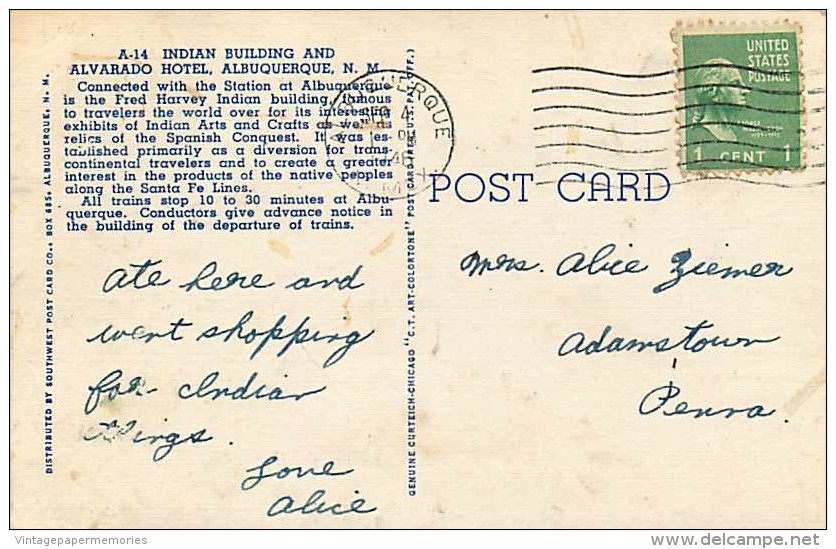 A-14 INDIAN BUILDING AND
ALVARADO HOTEL, ALBUQUERQUE, N. M.
Connected with the Station at Albuquerque
is the Fred Harvey Indian building, famous
to travelers the world over for its interesting
exhibits of Indian Arts and Crafts as well as
relics of the Spanish Conquest. It was es-
tablished primarily as a diversion for trans-
continental travelers and to create a greater
interest in the products of the native peoples
along the Santa Fe Lines.
All trains stop 10 to 30 minutes at Albu-
querque. Conductors give advance notice in
the building of the departure of trains.
DISTRIBUTED BY SOUTHWEST POST CARD CO., BOX 685, ALBUQUERQUE, N. M.
GENUINE CURTEICH-CHICAGO "C.T. ART-COLORTONE" POST CARD (REG. U.S. PAT. OFF.)
ALBUQUERQUE
N. M.
UNITED
STATES
POSTAGE
1 CENT 1
POST CARD
Ate here and
went shopping
for Indian
Rings.
Love
Alice
Mrs. Alice Ziemer
Adamstown
Penna.
Vintagepapermemories
delcampe.net